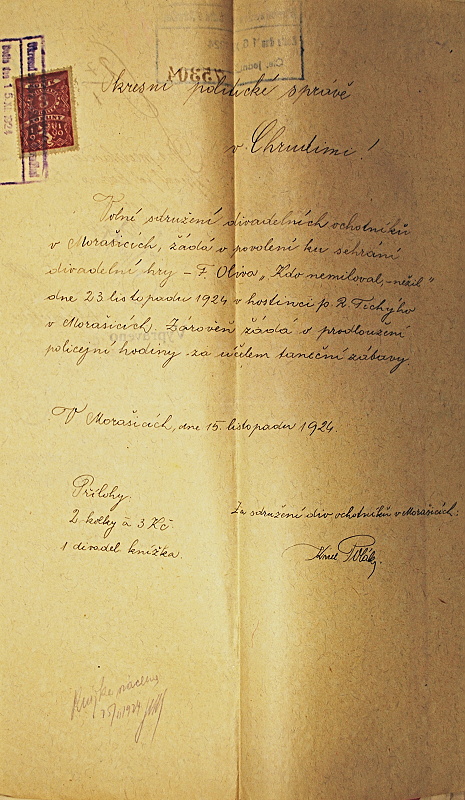 Okresní politické správě
v Chrudimi!
Volné sdružení divadelních ochotníků
v Morašicích, žádá o povolení ku sehrání
divadelní hry – F. Oliva „Kdo nemiloval, nežil"
dne 23 listopadu 1924 v hostinci p. R. Tichýho
v Morašicích. Zároveň žádá o prodloužení
policejní hodiny za účelem taneční zábavy.
V Morašicích, dne 15. listopadu 1924.
Přílohy:
2 kolky à 3 Kč.
1 divadel. knížka.
Za sdružení div. ochotníků v Morašicích:
Karel Polák